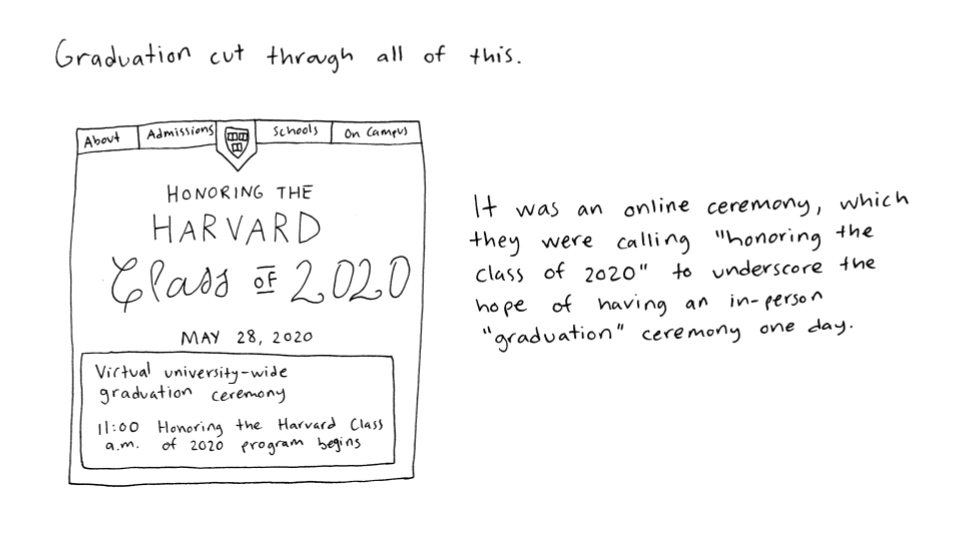 Graduation cut through all of this.
About Admissions Schools On Campus
HONORING THE
HARVARD
Class OF 2020
MAY 28, 2020
Virtual university-wide
graduation ceremony
11:00 Honoring the Harvard Class
a.m. of 2020 program begins
It was an online ceremony, which
they were calling "honoring the
class of 2020" to underscore the
hope of having an in-person
"graduation" ceremony one day.